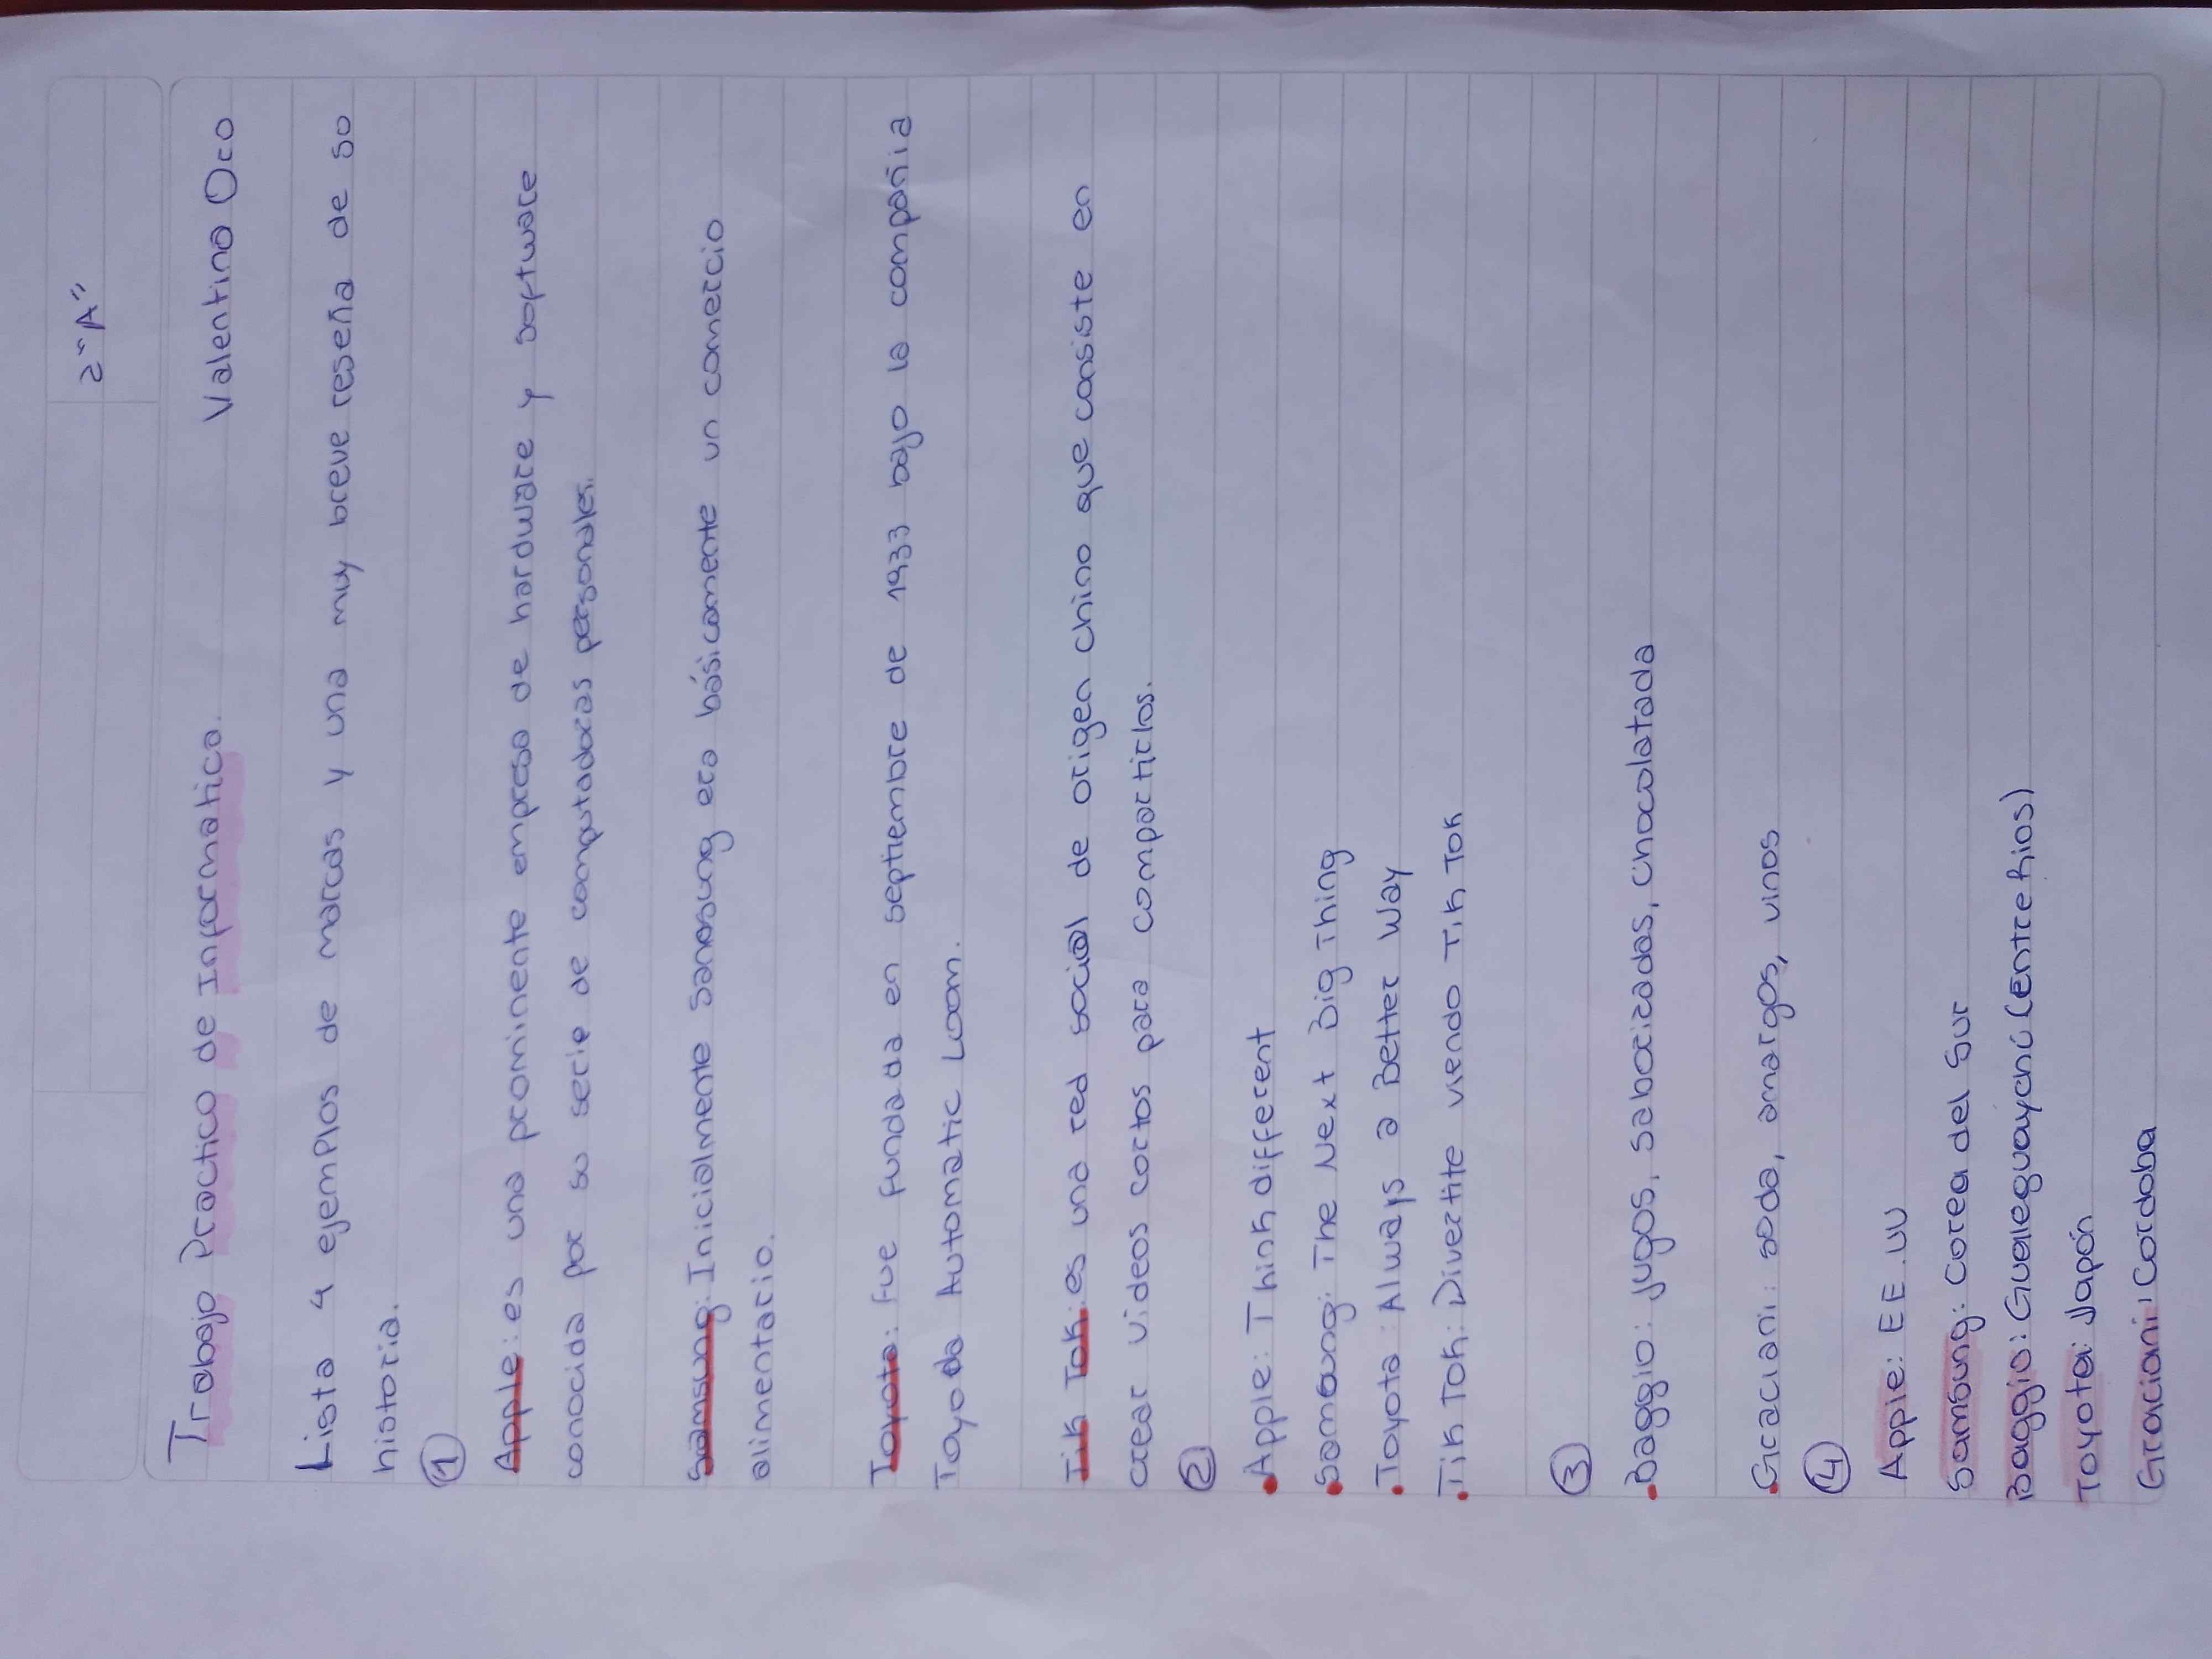 2 "A"
Trabajo Practico de Informatica. Valentino Oro
Lista 4 ejemplos de marcas y una muy breve reseña de su
historia.
1
Apple: es una prominente empresa de hardware y software
conocida por su serie de computadoras personales.
Samsung: Inicialmente Samsung era básicamente un comercio
alimentario.
Toyota: Fue fundada en septiembre de 1933 bajo la compañia
Toyoda Automatic Loom.
Tik Tok: es una red social de origen chino que consiste en
crear videos cortos para compartirlos.
2
•Apple: Think different
•Samsung: The Next Big Thing
•Toyota: Always a Better Way
•Tik Tok: Divertite viendo Tik Tok
3
•Baggio: jugos, saborizadas, chocolatada
•Graciani: soda, amargos, vinos
4
Apple: EE.UU
Samsung: Corea del Sur
Baggio: Gualeguaychú (Entre Rios)
Toyota: Japón
Graciani: Cordoba